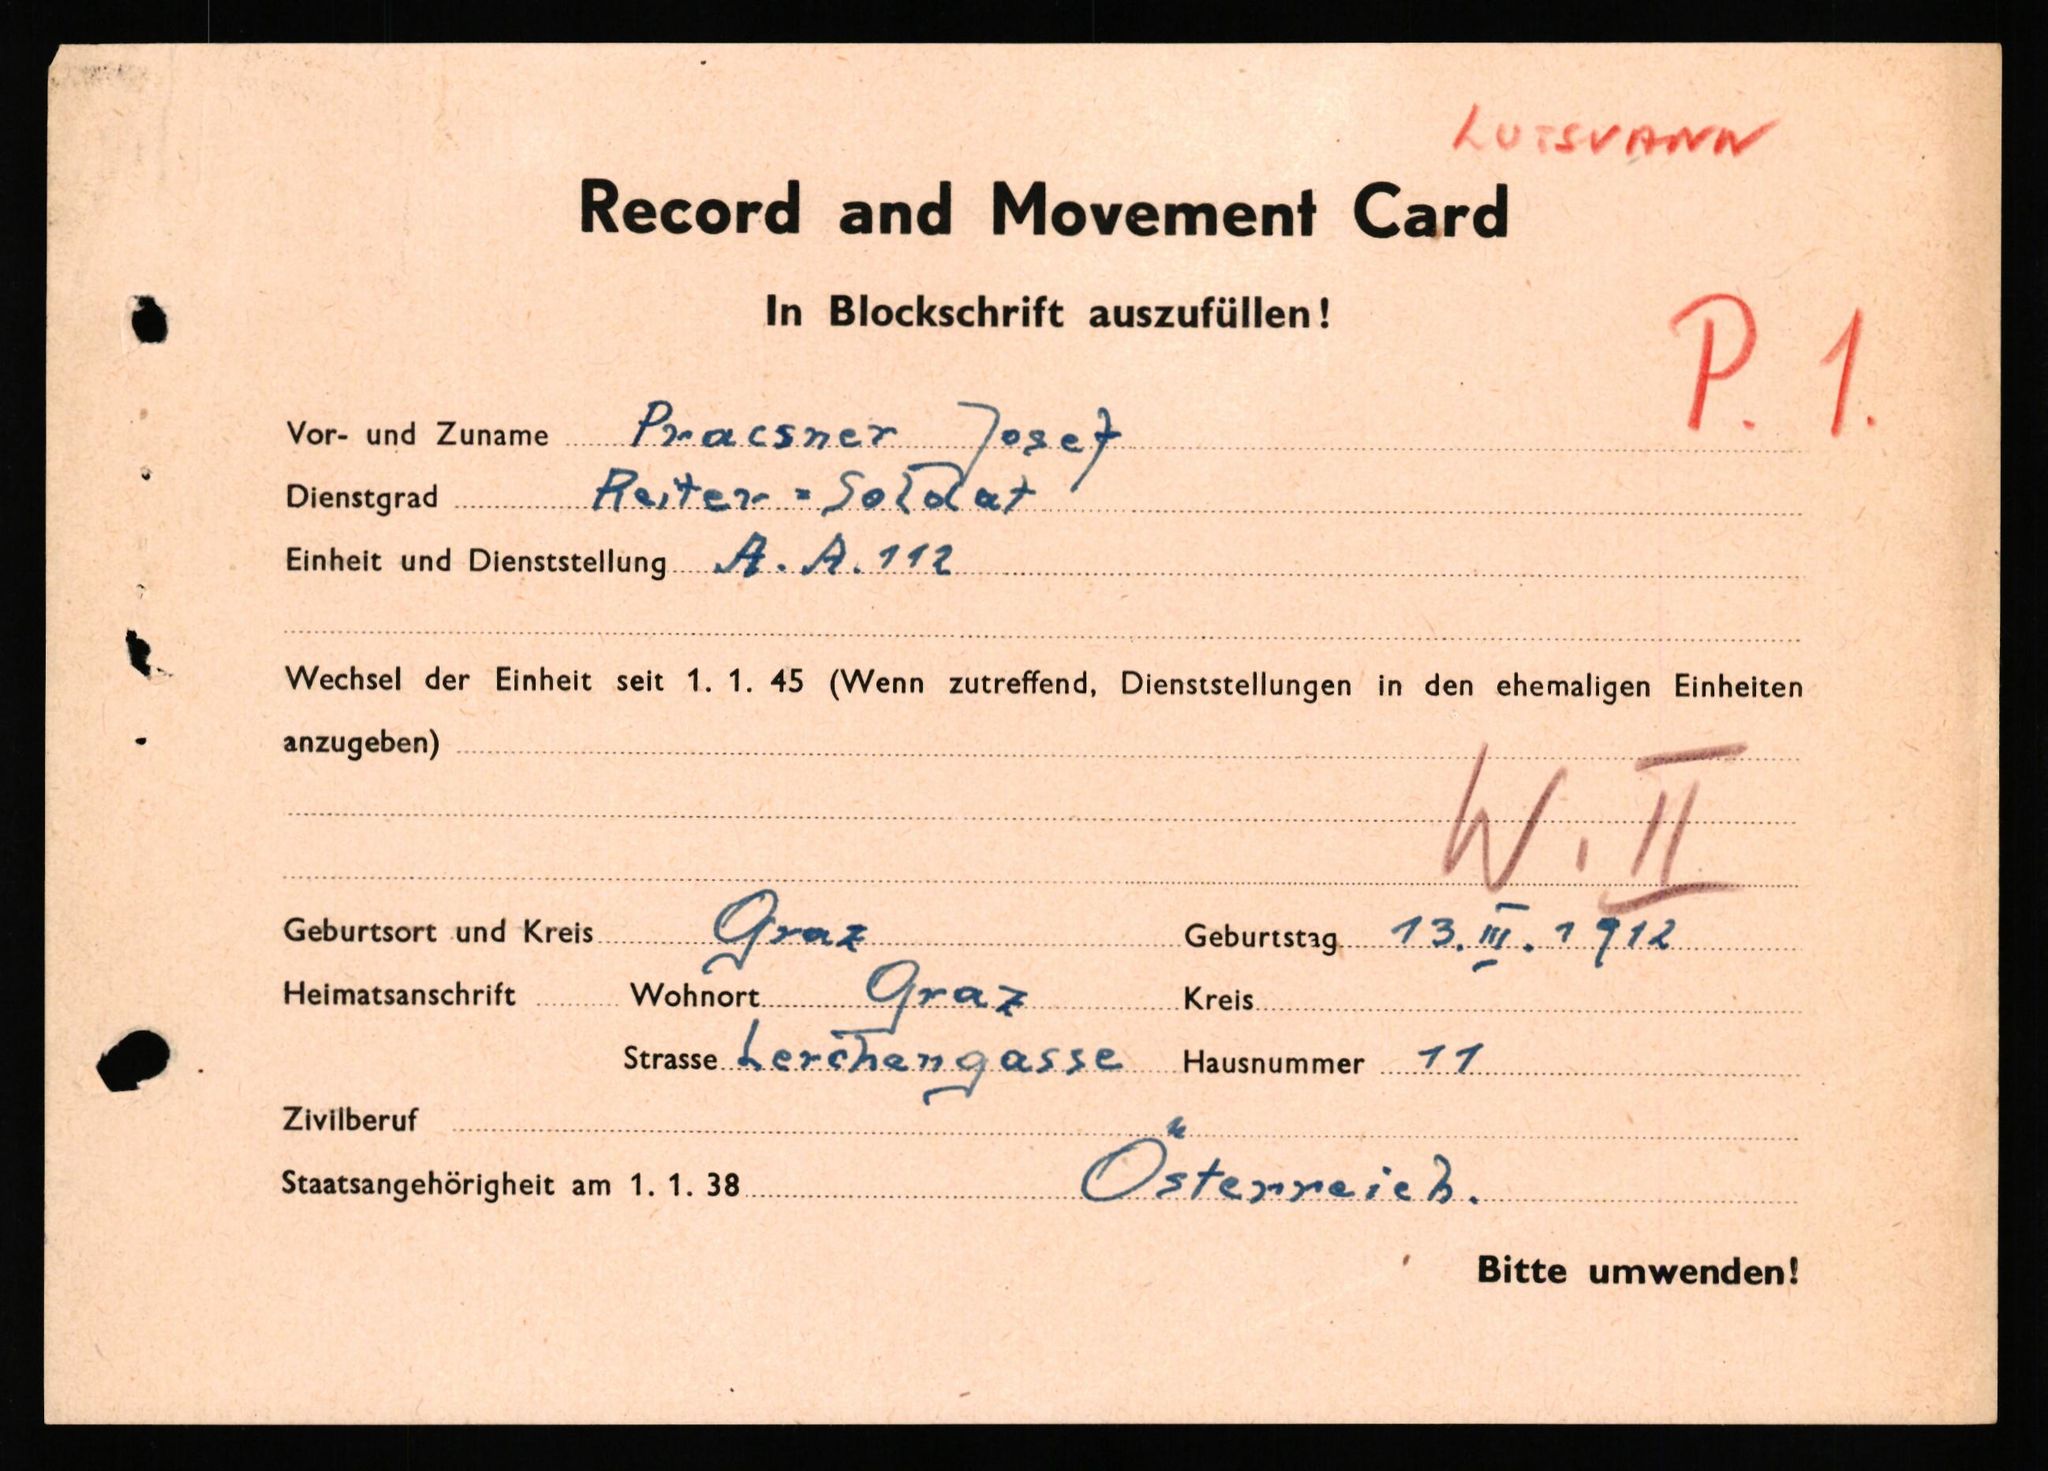 LUTSVANN
Record and Movement Card
In Blockschrift auszufüllen!
P. 1.
Vor- und Zuname Pracsner Josef
Dienstgrad Reiter = Soldat
Einheit und Dienststellung A. A. 112
Wechsel der Einheit seit 1. 1. 45 (Wenn zutreffend, Dienststellungen in den ehemaligen Einheiten
anzugeben)
W. II
Geburtsort und Kreis Graz Geburtstag 13. III. 1912
Heimatsanschrift Wohnort Graz Kreis
Strasse Lerchengasse Hausnummer 11
Zivilberuf
Staatsangehörigheit am 1. 1. 38 Österreich.
Bitte umwenden!